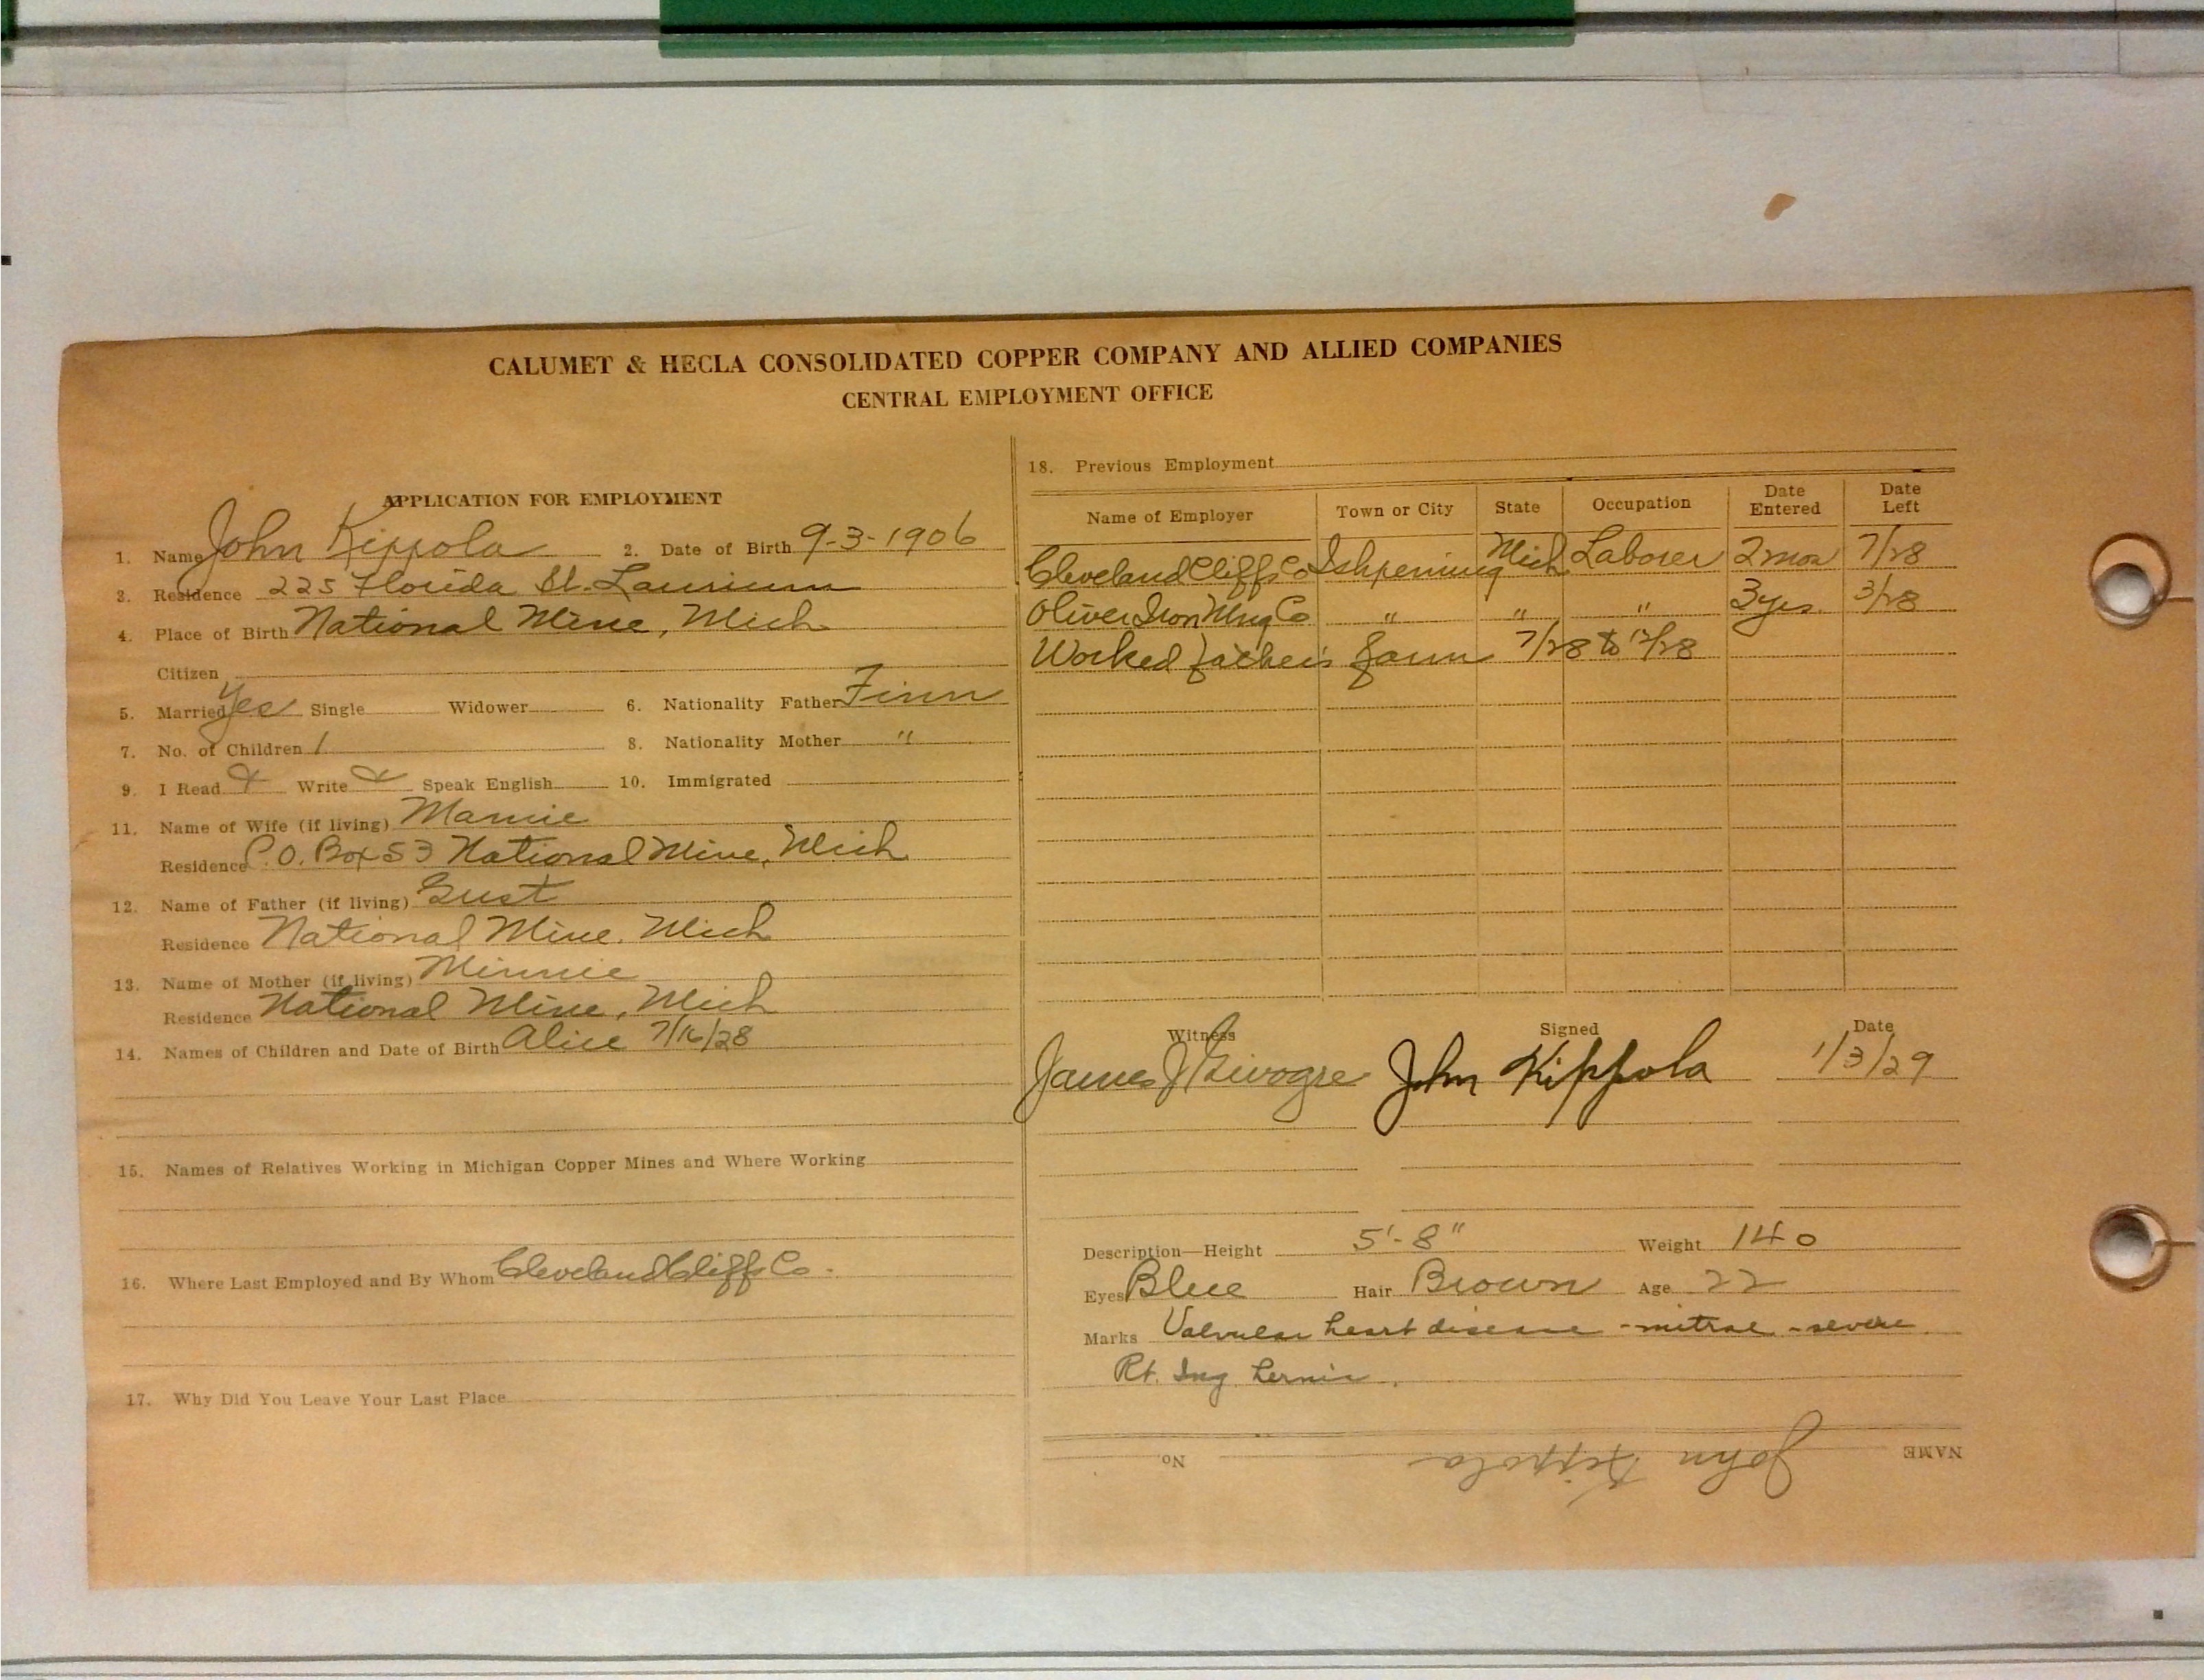 CALUMET & HECLA CONSOLIDATED COPPER COMPANY AND ALLIED COMPANIES
CENTRAL EMPLOYMENT OFFICE
APPLICATION FOR EMPLOYMENT
1. Name John Kippola 2. Date of Birth 9-3-1906
3. Residence 225 Florida St. Laurium
4. Place of Birth National Mine, Mich
Citizen
5. Married Yes Single Widower 6. Nationality Father Finn
7. No. of Children 1 8. Nationality Mother "
9. I Read Write Speak English 10. Immigrated
11. Name of Wife (if living) Mamie
Residence P.O. Box 53 National Mine, Mich
12. Name of Father (if living) Gust
Residence National Mine, Mich
13. Name of Mother (if living) Minnie
Residence National Mine, Mich
14. Names of Children and Date of Birth Alice 7/16/28
15. Names of Relatives Working in Michigan Copper Mines and Where Working
16. Where Last Employed and By Whom Cleveland Cliffs Co.
17. Why Did You Leave Your Last Place
18. Previous Employment
Name of Employer Town or City State Occupation Date Entered Date Left
Cleveland Cliffs Co Ishpeming Mich Laborer 2 mos 7/28
Oliver Iron Mng Co " " " 3 yrs. 3/28
Worked father's farm 7/28 to 12/28
Witness Signed Date
James J John Kippola 1/3/29
Description—Height 5'-8" Weight 140
Eyes Blue Hair Brown Age 22
Marks Valvular heart disease - mitral - severe
Rt. Ing. hernia.
NAME John Kippola No